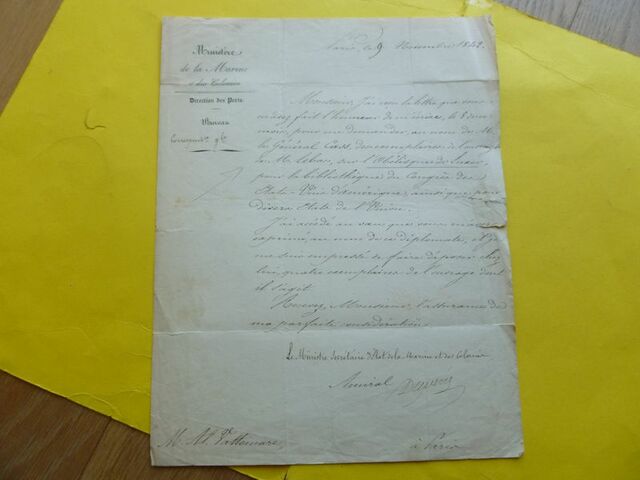 Ministère
de la Marine
et des Colonies
Direction des Ports
Bureau
Paris, le 9 Novembre 1842.
Monsieur, j'ai reçu la lettre que vous
m'avez fait l'honneur de m'écrire, le 8 de ce
mois, pour me demander, au nom de M.
le Général Cass, des exemplaires de l'ouvrage
de M. Lebas, sur l'Obélisque de Luxor,
pour la bibliothèque du Congrès des
États-Unis d'Amérique, ainsi que pour
divers États de l'Union.
J'ai accédé au vœu que vous m'avez
exprimé, au nom de ce diplomate, et je
me suis empressé de faire déposer chez
lui quatre exemplaires de l'ouvrage dont
il s'agit.
Recevez, Monsieur, l'assurance de
ma parfaite considération.
Le Ministre Secrétaire d'État de la Marine et des Colonies
Amiral Duperré
M. Al. Vattemare,
à Paris